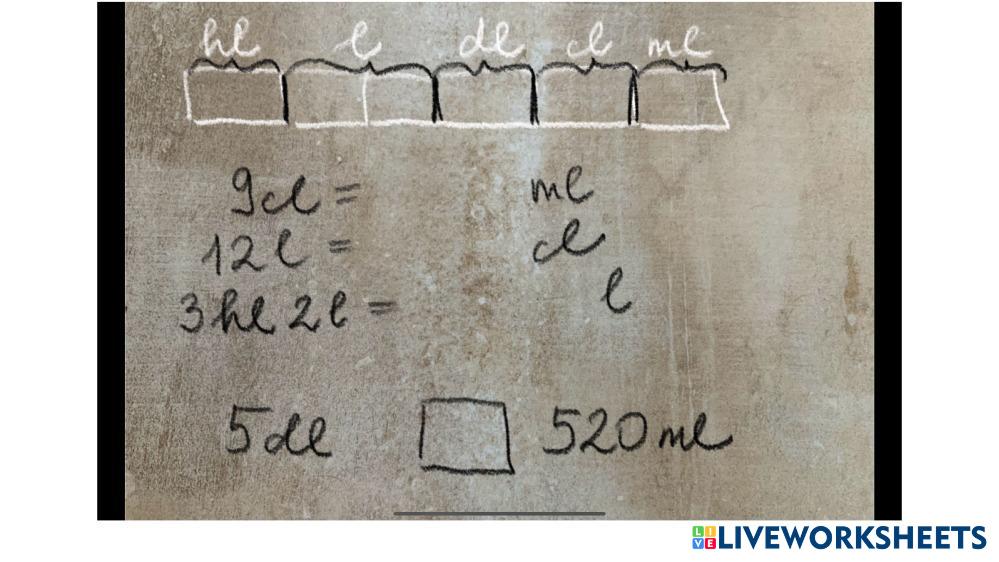 hl l dl cl ml
9cl = ml
12l = cl
3hl 2l = l
5dl 520ml
LIVEWORKSHEETS